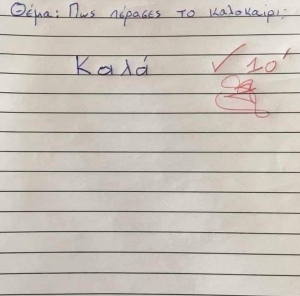 Θέμα: Πως πέρασες το καλοκαίρι;
Καλά ✓ 10'